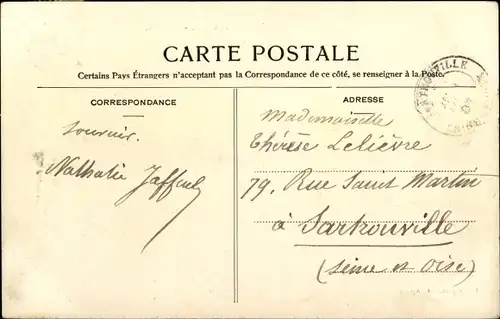 CARTE POSTALE
Certains Pays Étrangers n'acceptant pas la Correspondance de ce côté, se renseigner à la Poste.
CORRESPONDANCE
ADRESSE
Souvenir.
Nathalie
Mademoiselle
Thérèse Lelièvre
79, Rue Saint Martin
à Sartrouville
(Seine et Oise)